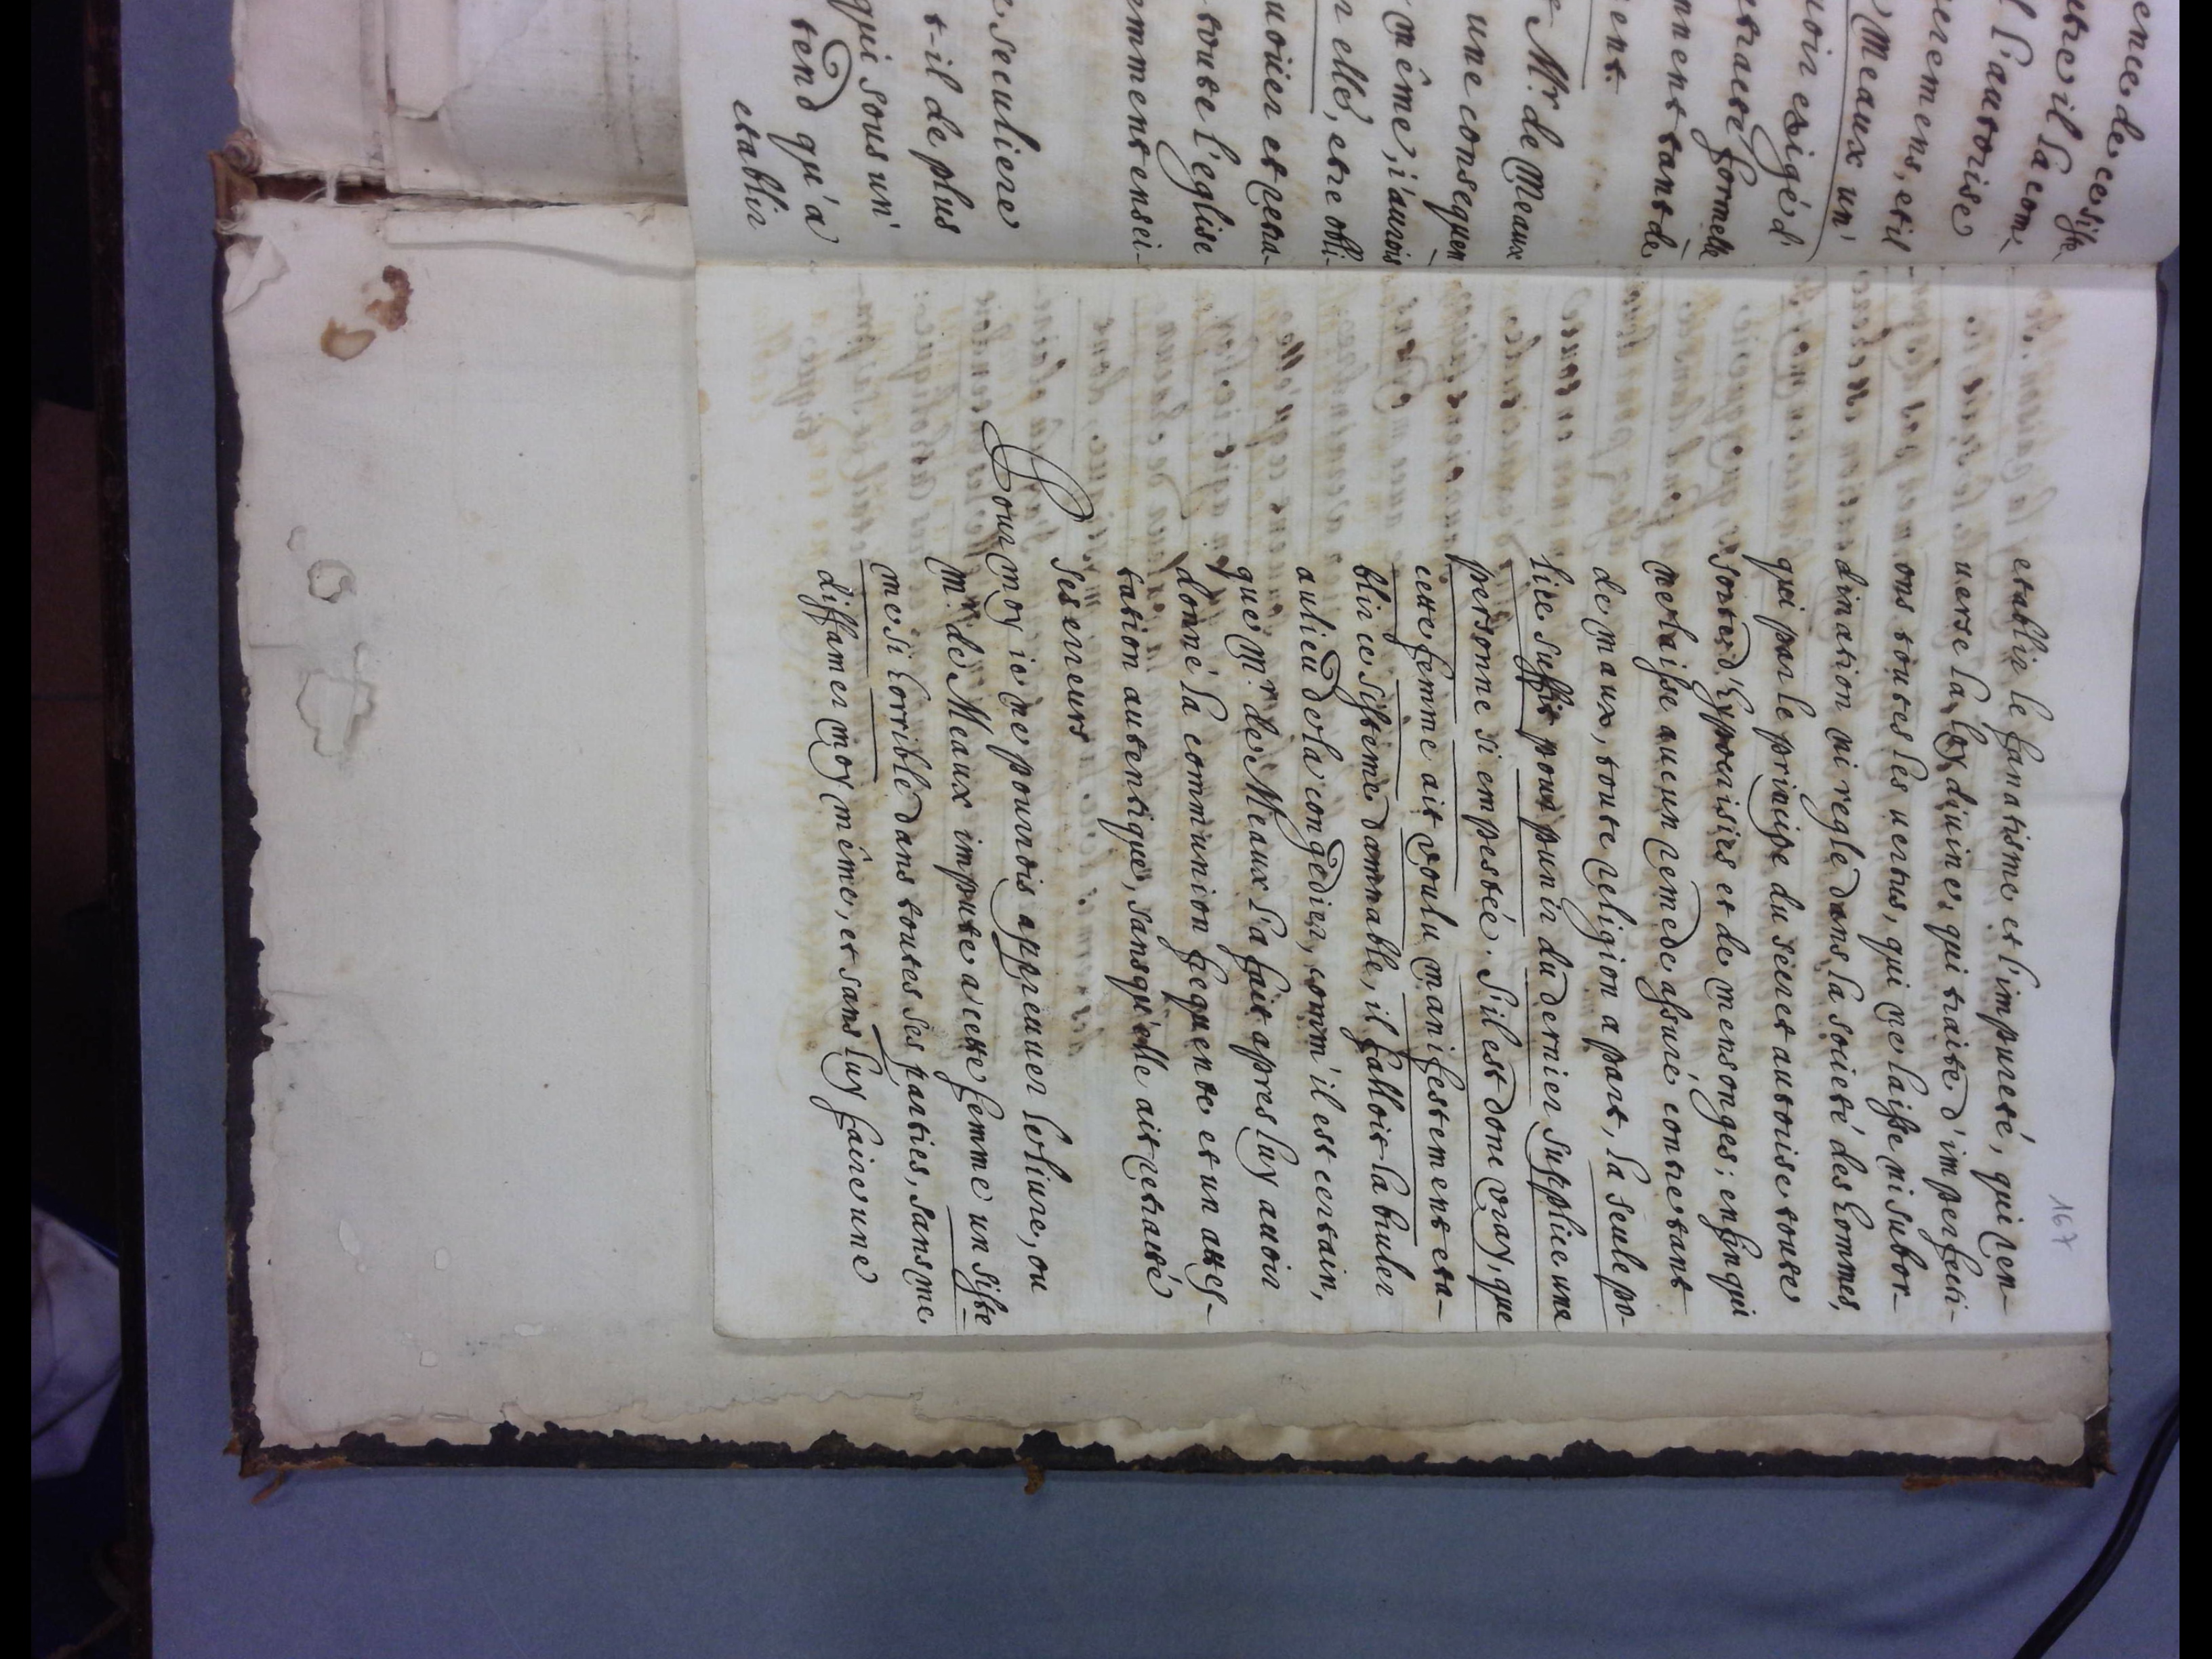 ence de ce siste
etre il la com-
l l'autorise
erremens, et il
Meaux un
uoir exigé d'
etracté formelle
nnent tant de
ent.
Mr. de Meaux
une consequen
même, i'aurois
n elle, etre obli-
uoüer et retra-
toute l'eglise
emment ensei-
e seculiere
t-il de plus
qui sous un
tend qu'a
etablir
167
etablir le fanatisme et l'impureté, qui ren-
uerse la loy diuine, qui traite d'imperfecti-
ons toutes les uertus, qui ne laisse ni subor-
dination ni regle dans la societé des hommes,
qui par le principe du secret autorise toute
sorte d'hypocrisies et de mensonges; enfin qui
ne laisse aucun remede assuré contre tant
de maux, toute religion a part, la seule po-
lice suffit pour punir du dernier supplice une
personne si empestée. S'il est donc vray, que
cette femme ait voulu manifestement eta-
blir ce sisteme damnable, il falloit la bruler
au lieu de la congedier, comm'il est certain,
que Mr. de Meaux l'a fait apres luy auoir
donné la communion frequente et un attes-
tation autentique, sans qu'elle ait retracté
ses erreurs
Pour moy ie ne pourrois appreuuer le liure, ou
Mr. de Meaux impute a cette femme un siste
me si horrible dans toutes ses parties, sans me
diffamer moy même, et sans luy faire une